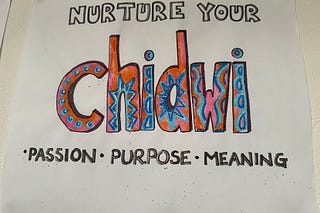 NURTURE YOUR
chidwi
·PASSION·PURPOSE·MEANING